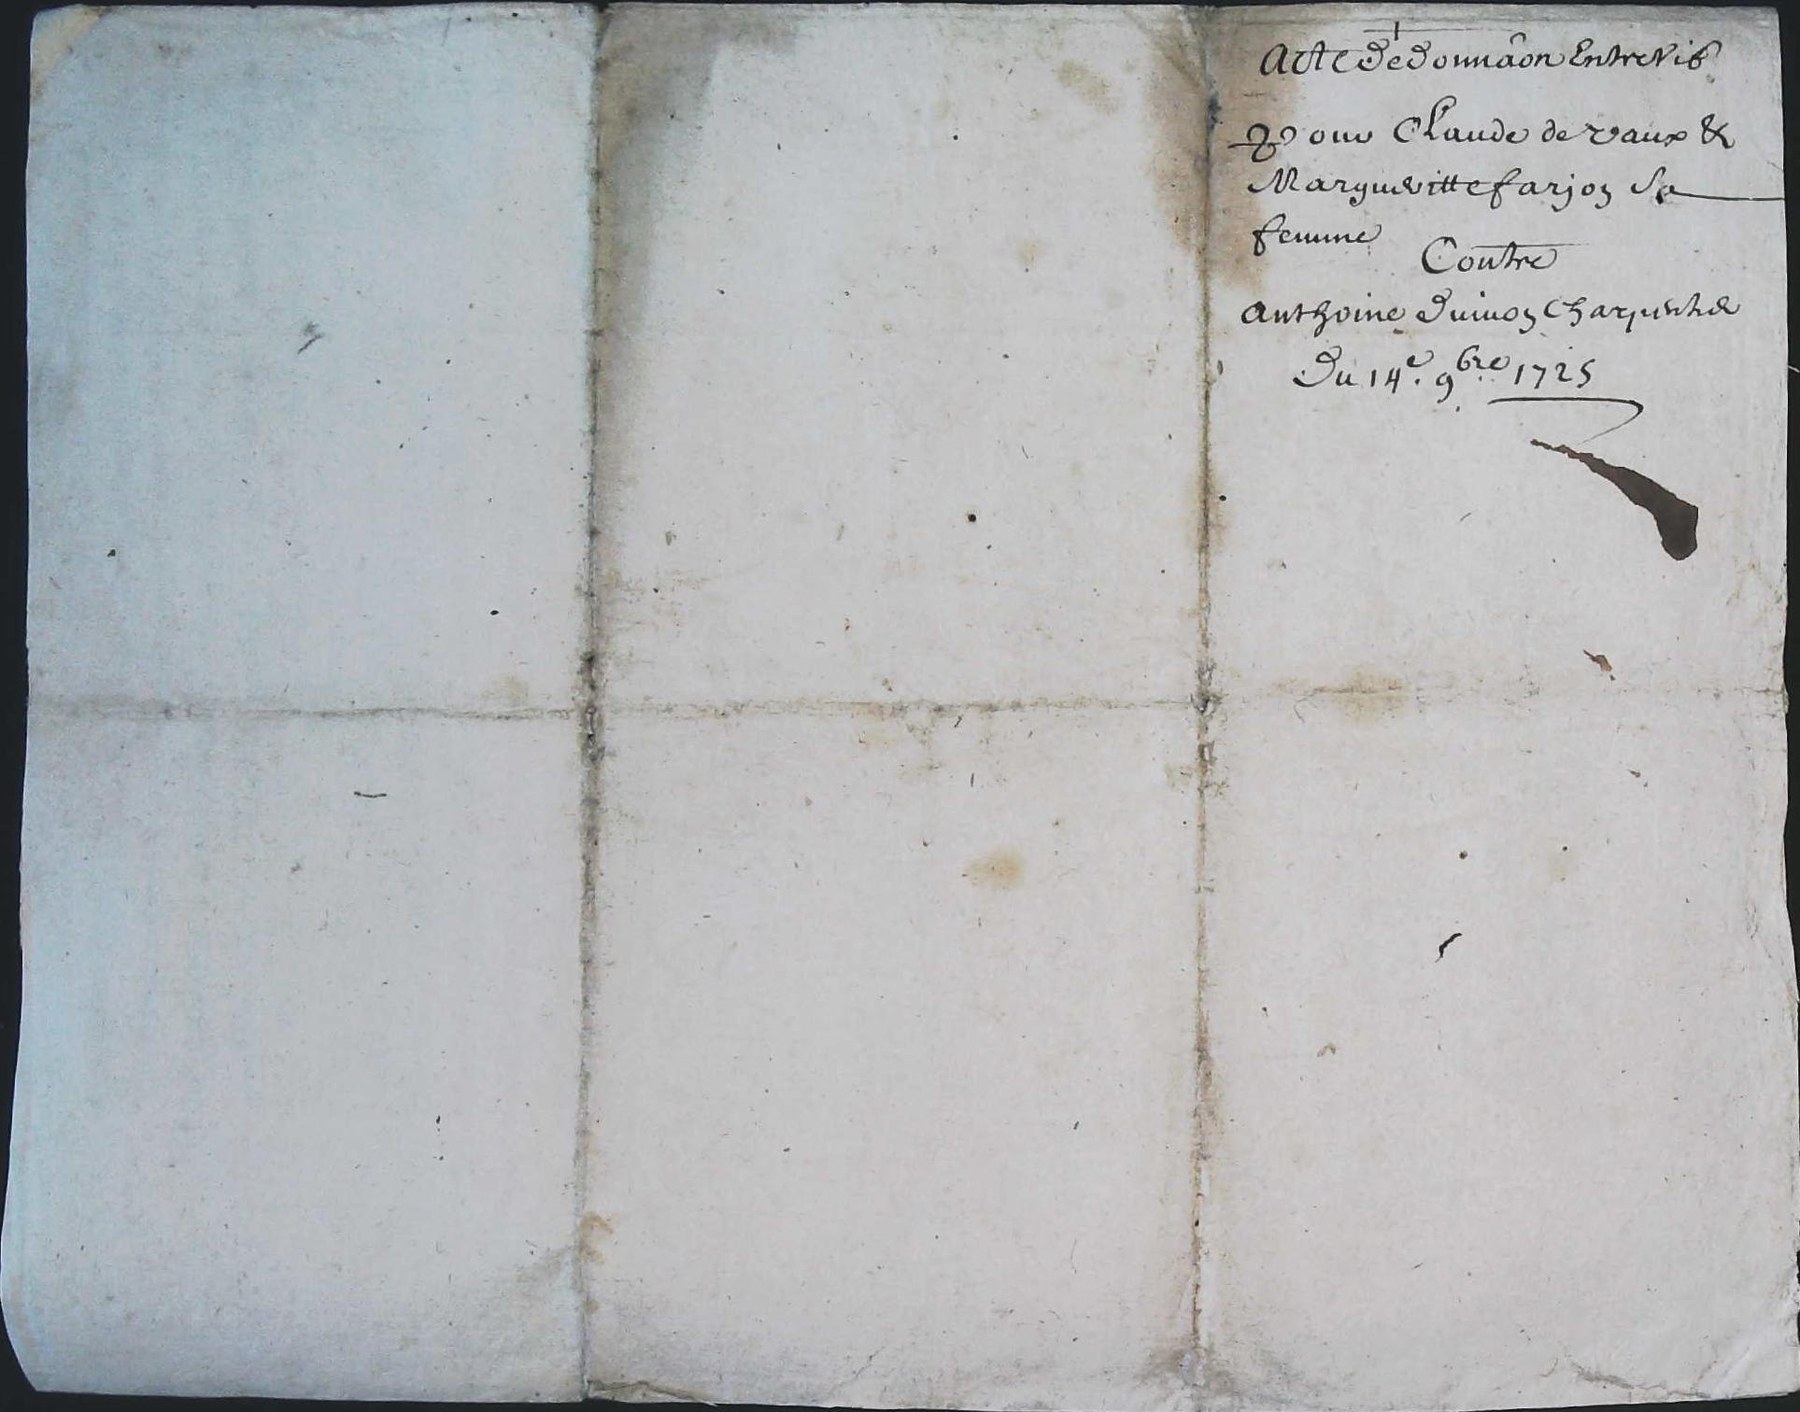 Acte de donnâon Entre Vifs
Pour Claude de vaux &
Margueritte farjon Sa
femme
Contre
Anthoine Charpentier
Du 14e. 9bre 1725